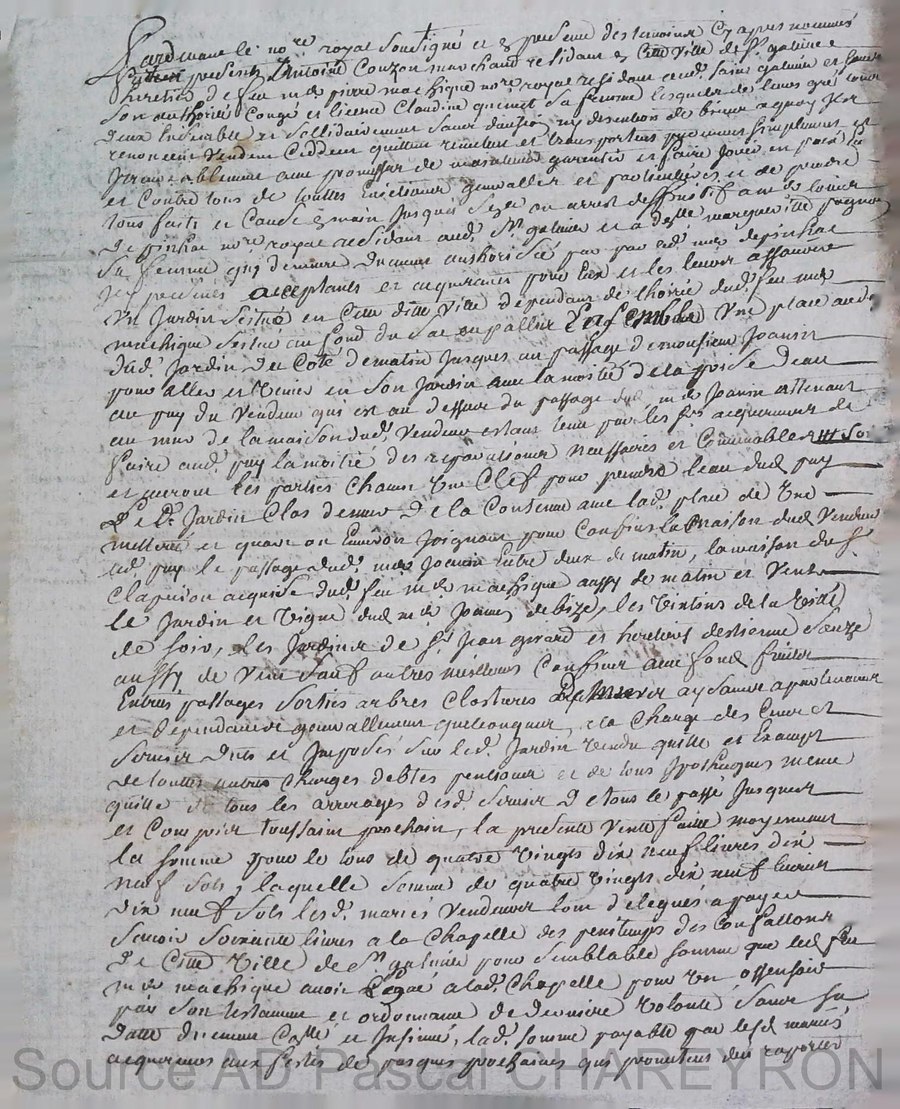 Pardevant le no.re royal soussigné et en presence des temoins cy apres nommés
presents Antoine Couzon marchand residant en cette ville de s.t galmier
heretier de feu m.e pierre machique no.re royal residant aud. saint galmier et
son authorité congé et licence Claudine sa femme lesquels de leurs gré
deux ensemble et sollidairement sans division ny discution de biens a quoy
renoncent vendent ceddent quittent remettent et transportent purement simplement et
irrevocablement avec promesse de maintenir garentir et faire jouir en paix
et contre tous de touttes evictions generalles et particulieres et de prendre
tous faits et cause en main jusques a arrest deffinitif a
de pinhac no.re royal residant aud. s.t galmier et a d.lle marguerite
sa femme quy demeure duement authorisée par led. m.e depinhac
icy presents acceptants et acquereurs pour eux et les leurs assavoir
un jardin scitué en cette ditte ville dependant de l'hoirie dud. feu m.e
machique scitué au fond du sac Ensemble une place aud.
dud. jardin du coté de matin jusques au passage de monsieur Joanin
pour aller et venir en son jardin avec la moitié de la prise d'eau
au puy du vendeur qui est au dessus du passage dud. m.e Joanin attenant
au mur de la maison dud. vendeur estant tenu par les s.rs acquereurs de
faire aud. puy la moitié des reparations necessaires et convenables
et auront les parties chacun une clef pour prendre l'eau dud. puy
Le d. jardin clos de murs de la contenue avec lad. place de une
metterée et quart ou environ joignant pour confins la maison dud. vendeur
led. puy le passage dud. m.e Joanin entre deux de matin, la maison du s.r
acquise dud. feu m.e machique aussy de matin et vent
le jardin et vigne dud. m.e Joanin de bize, les de la ville
de soir, les jardins de s.r Jean girard et heretiers d'estienne
aussy de vent sauf autres meilleurs confins avec fond fruits
Entrées passages sorties arbres clostures aysances apartenances
et dependances generallement quelconques, a la charge des cens et
servis dûs et imposés sur led. jardin vendu quitte et exempt
de touttes autres charges debtes pentions et de tous ypotheques meme
quitte de tous les arrerages desd. servis de tous le passé jusques
et compris toussaint prochain, la presente vente faitte moyennant
la somme pour le tout de quatre vingts dix neuf livres dix
neuf sols, laquelle somme de quatre vingts dix neuf livres
dix neuf sols lesd. mariés vendeurs ont delegués a payer
scavoir soixante livres a la chapelle des penitents des Confallons
de cette ville de s.t galmier pour semblable somme que led. feu
m.e machique avoit legué a lad. chapelle pour un ostensoir
par son testament et ordonnance de derniere volonté sans sa
datte duement et insinué, lad. somme payable par lesd. mariés
acquereurs aux festes de pasques prochaines qui promettent den raporter
Source AD Pascal CHAREYRON